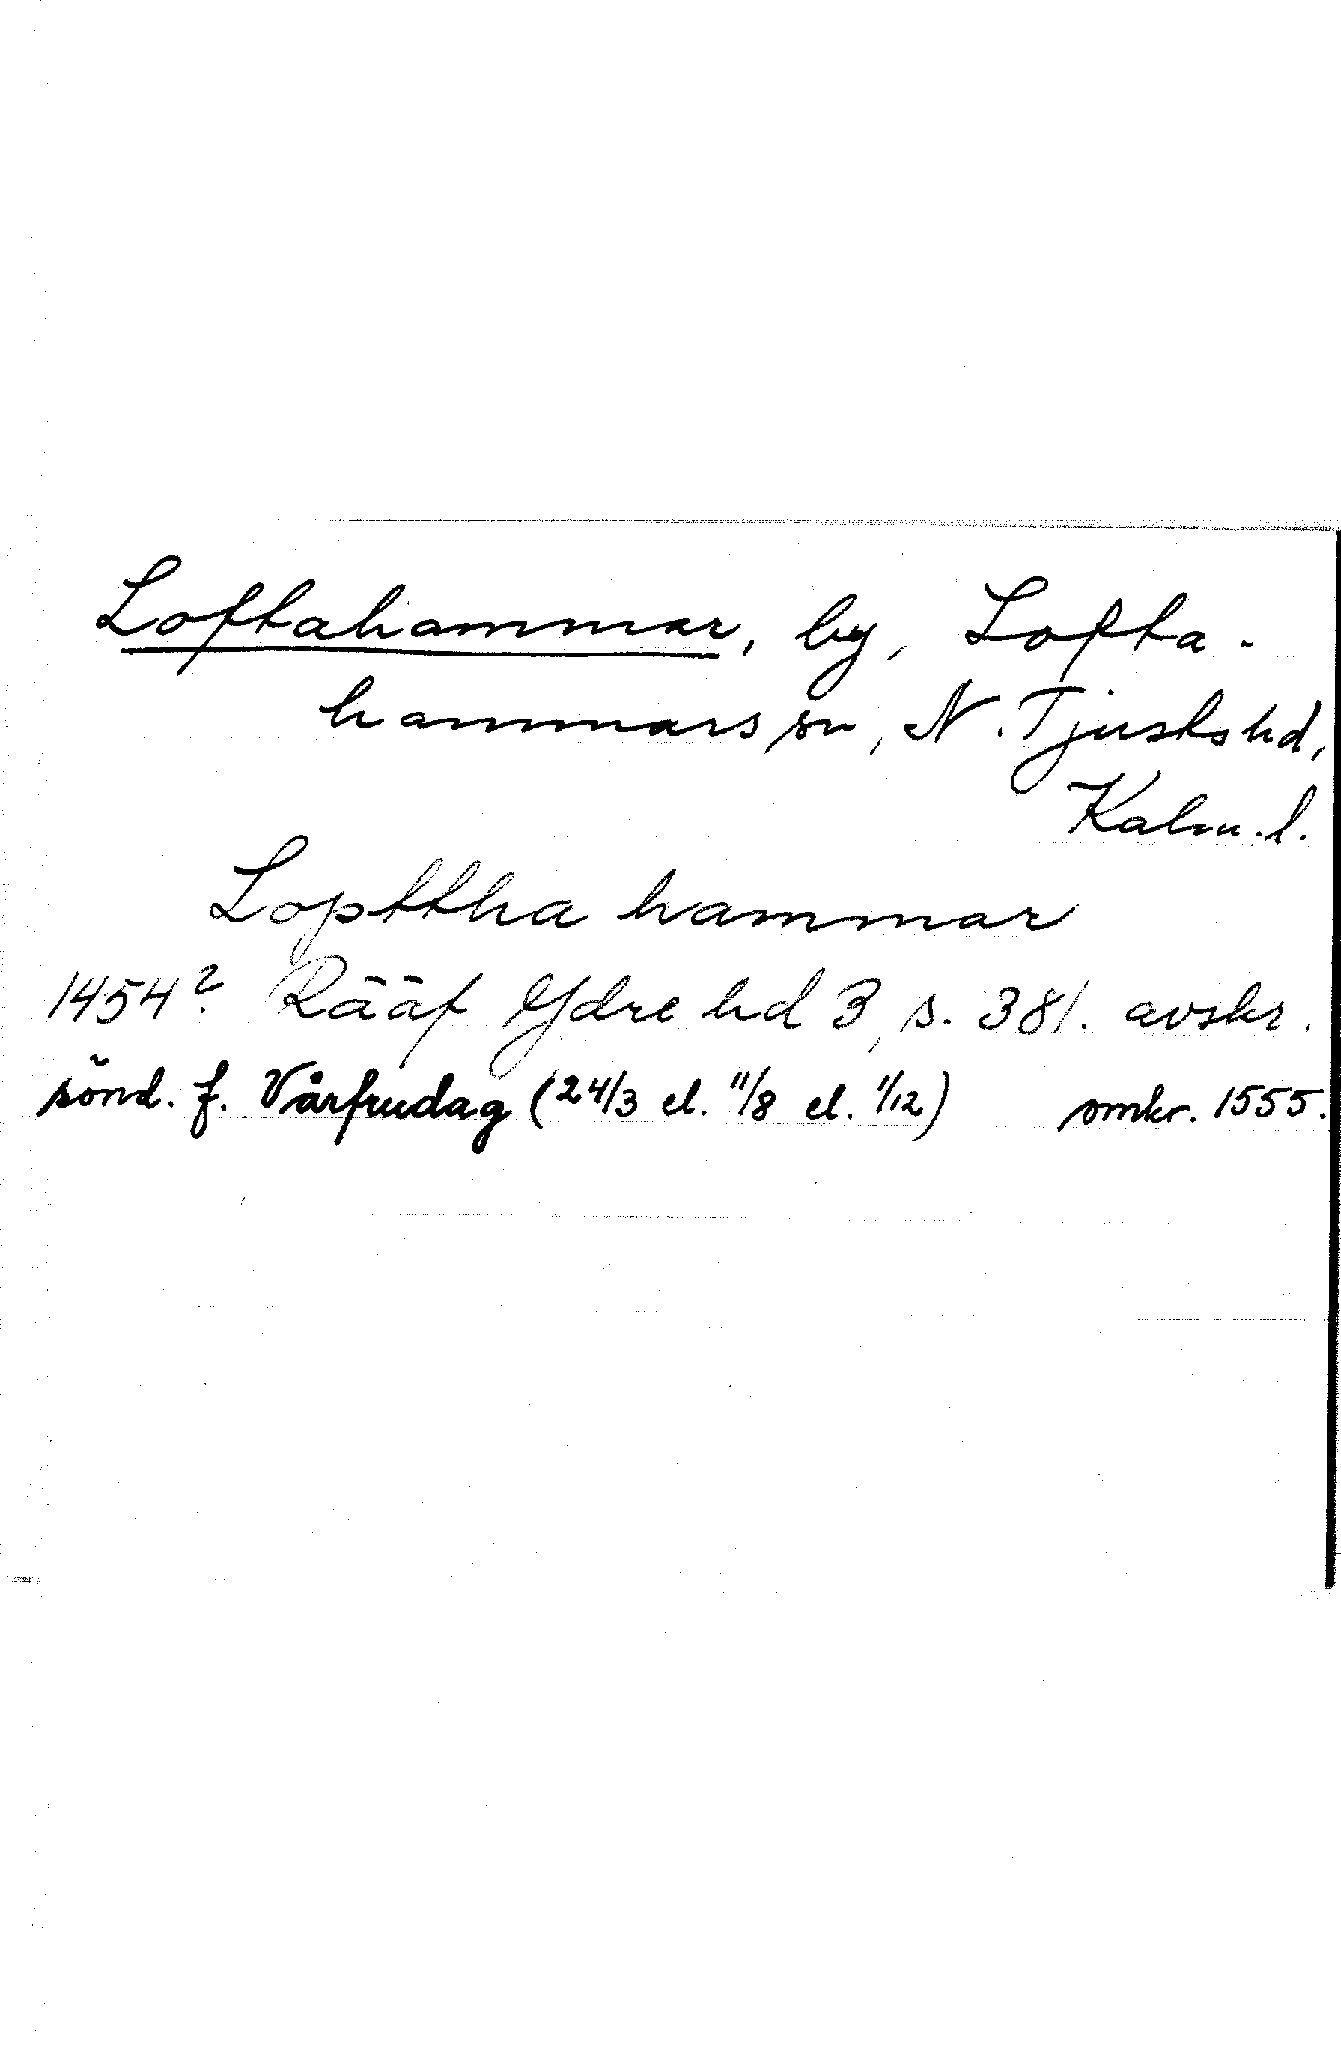 Loftahammar, by, Lofta-
hammars sn, N. Tjusts hd,
Kalm. l.
Lopttha hammar
1454? Rääf Ydre hd 3, s. 381. avskr.
sönd. f. Vårfrudag (24/3 el. 11/8 el. 1/12) omkr. 1555.